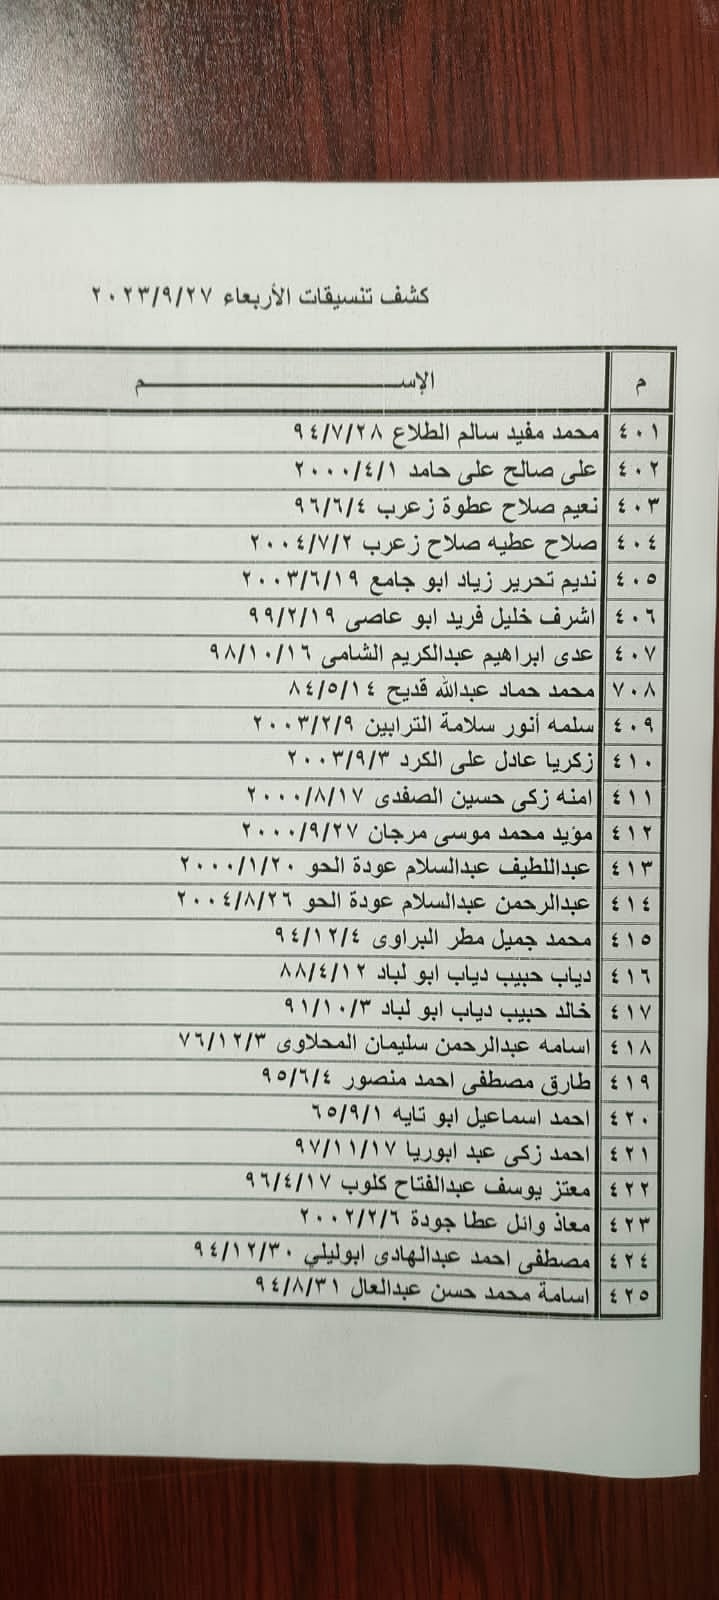 كشف تنسيقات الأربعاء ٢٠٢٣/٩/٢٧
م الإســــــــم
٤٠١ محمد مفيد سالم الطلاع ٩٤/٧/٢٨
٤٠٢ على صالح على حامد ٢٠٠٠/٤/١
٤٠٣ نعيم صلاح عطوة زعرب ٩٦/٦/٤
٤٠٤ صلاح عطيه صلاح زعرب ٢٠٠٤/٧/٢
٤٠٥ نديم تحرير زياد ابو جامع ٢٠٠٣/٦/١٩
٤٠٦ اشرف خليل فريد ابو عاصى ٩٩/٢/١٩
٤٠٧ عدى ابراهيم عبدالكريم الشامى ٩٨/١٠/١٦
٧٠٨ محمد حماد عبدالله قديح ٨٤/٥/١٤
٤٠٩ سلمه أنور سلامة الترابين ٢٠٠٣/٢/٩
٤١٠ زكريا عادل على الكرد ٢٠٠٣/٩/٣
٤١١ امنه زكى حسين الصفدى ٢٠٠٠/٨/١٧
٤١٢ مؤيد محمد موسى مرجان ٢٠٠٠/٩/٢٧
٤١٣ عبداللطيف عبدالسلام عودة الحو ٢٠٠٠/١/٢٠
٤١٤ عبدالرحمن عبدالسلام عودة الحو ٢٠٠٤/٨/٢٦
٤١٥ محمد جميل مطر البراوى ٩٤/١٢/٤
٤١٦ دياب حبيب دياب ابو لباد ٨٨/٤/١٢
٤١٧ خالد حبيب دياب ابو لباد ٩١/١٠/٣
٤١٨ اسامه عبدالرحمن سليمان المحلاوى ٧٦/١٢/٣
٤١٩ طارق مصطفى احمد منصور ٩٥/٦/٤
٤٢٠ احمد اسماعيل ابو تايه ٦٥/٩/١
٤٢١ احمد زكى عبد ابوريا ٩٧/١١/١٧
٤٢٢ معتز يوسف عبدالفتاح كلوب ٩٦/٤/١٧
٤٢٣ معاذ وائل عطا جودة ٢٠٠٢/٢/٦
٤٢٤ مصطفى احمد عبدالهادى ابوليلي ٩٤/١٢/٣٠
٤٢٥ اسامة محمد حسن عبدالعال ٩٤/٨/٣١